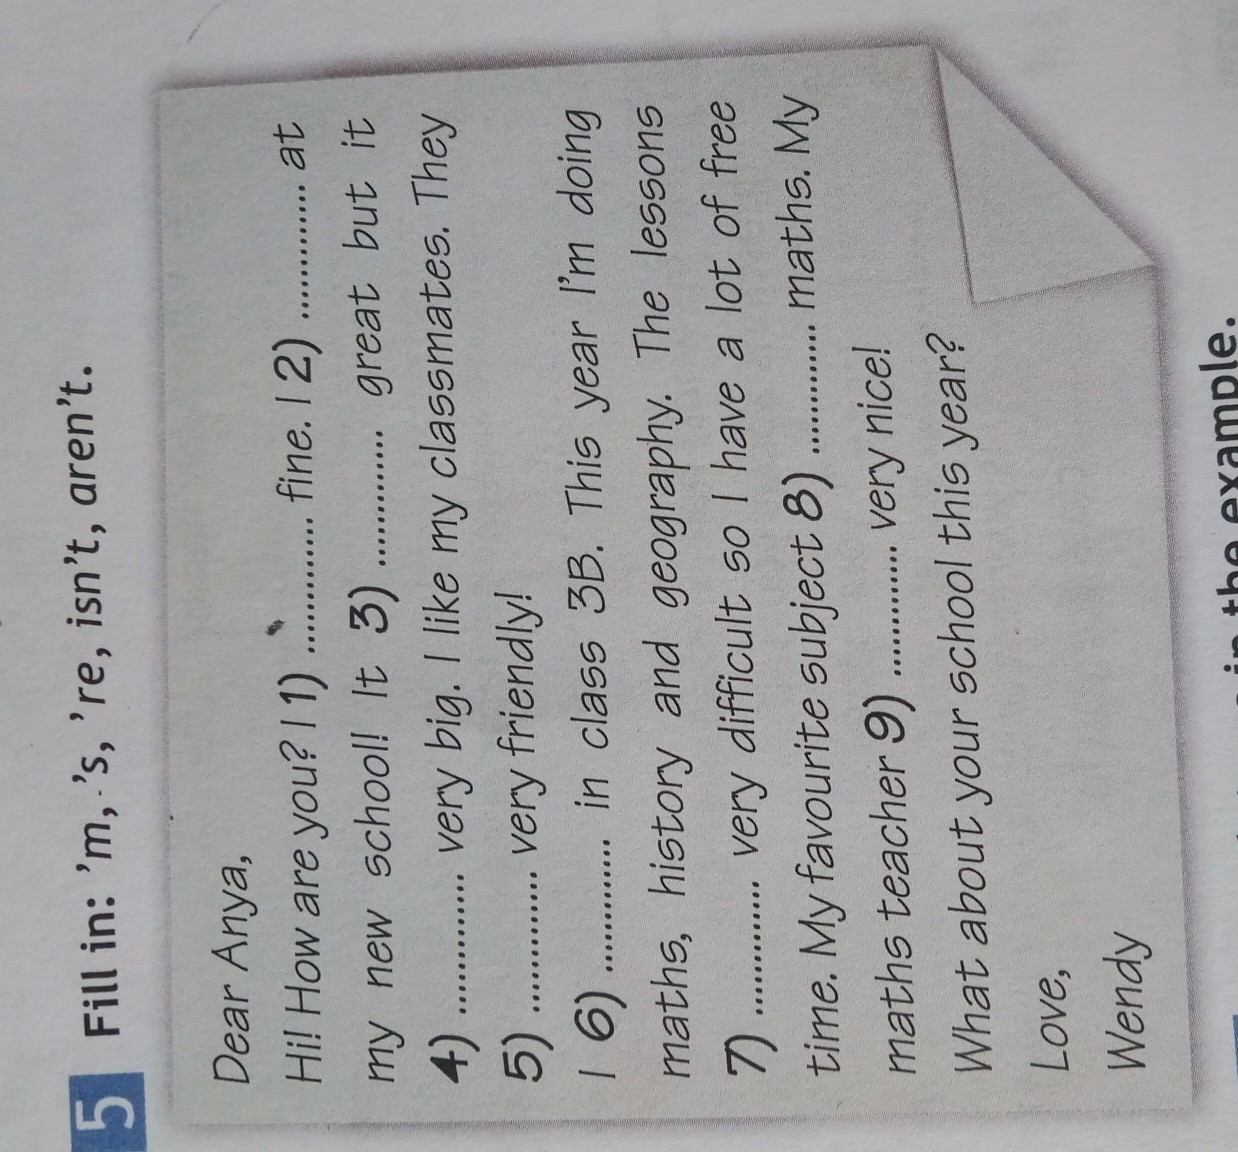 5 Fill in: 'm, 's, 're, isn't, aren't.
Dear Anya,
Hi! How are you? I 1) ............ fine. I 2) ............ at
my new school! It 3) ............ great but it
4) ............ very big. I like my classmates. They
5) ............ very friendly!
I 6) ............ in class 3B. This year I'm doing
maths, history and geography. The lessons
7) ............ very difficult so I have a lot of free
time. My favourite subject 8) ............ maths. My
maths teacher 9) ............ very nice!
What about your school this year?
Love,
Wendy
in the example.